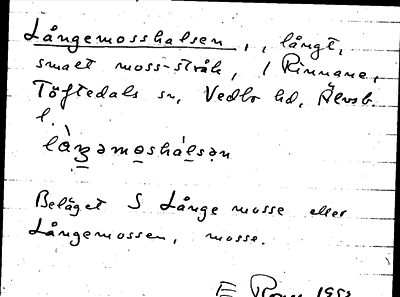 Långemosshalsen, , långt,
smalt moss-stråk, i Rinnane,
Töftedals sn, Vedbo hd, Älvsb.
l.
làŋ̱əmo̱shál̠sən
Beläget S Långe mosse eller
Långemossen, mosse.
E 1952